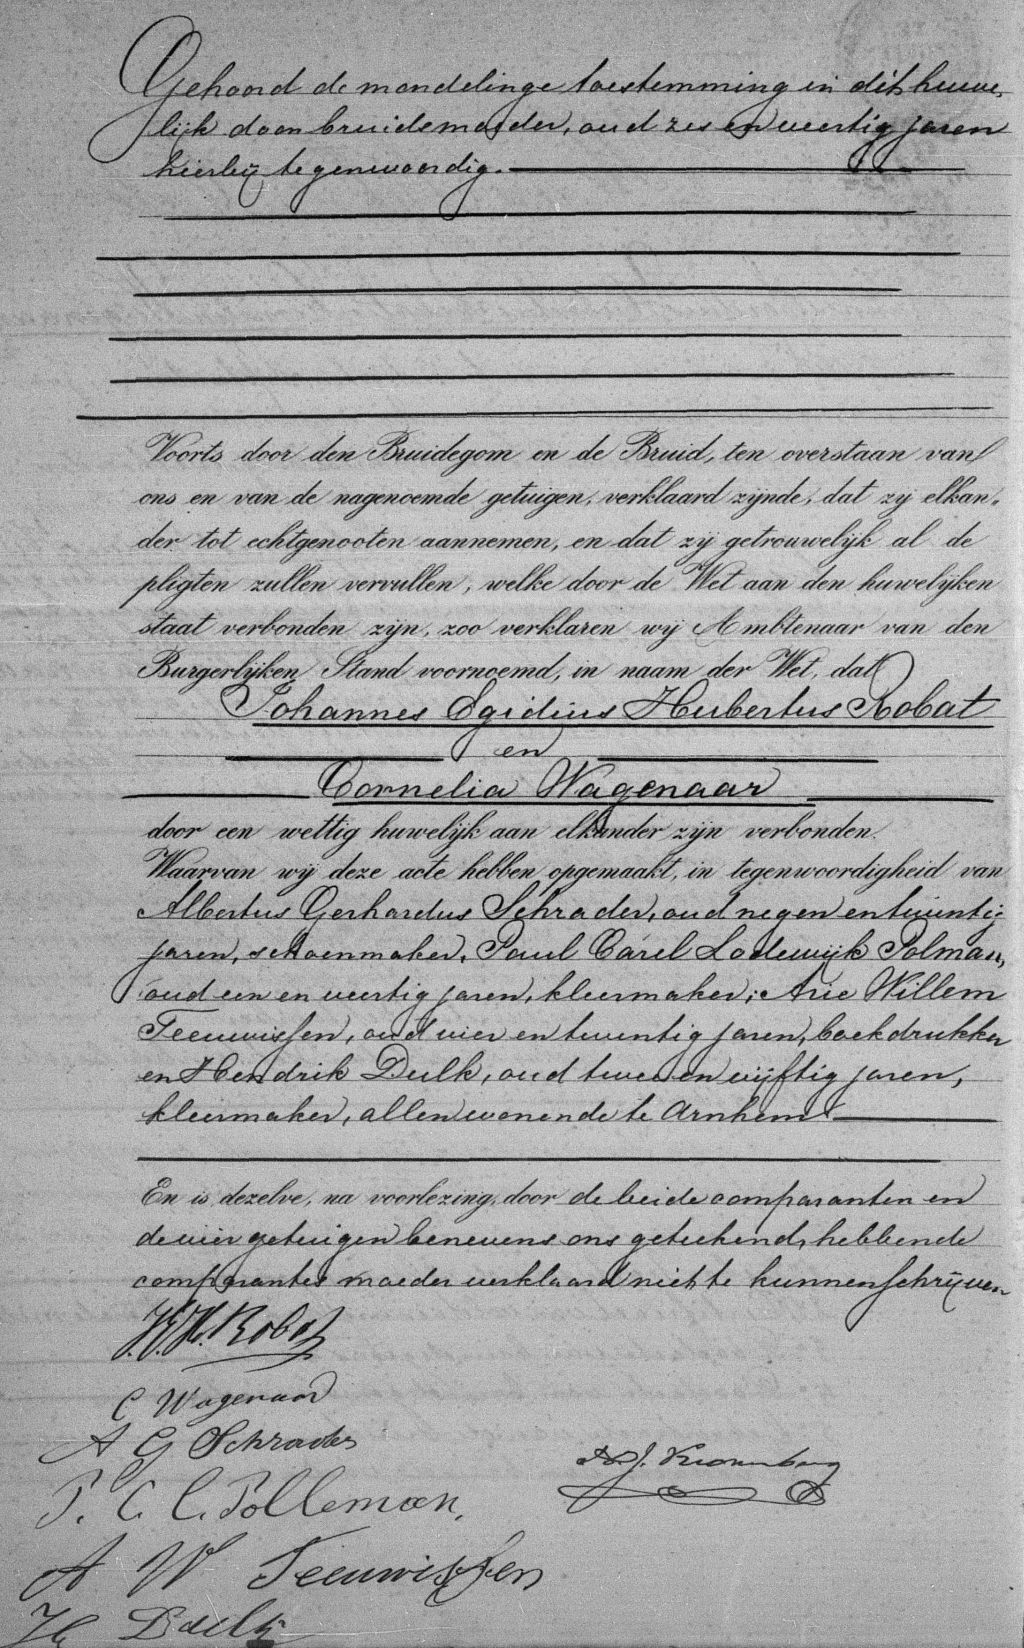 Gehoord de mondelinge toestemming in dit huwe„
lijk door bruidsmoeder, oud zes en veertig jaren
hierbij tegenwoordig.
Voorts door den Bruidegom en de Bruid, ten overstaan van
ons en van de nagenoemde getuigen, verklaard zijnde, dat zij elkan„
der tot echtgenooten aannemen, en dat zij getrouwelijk al de
pligten zullen vervullen, welke door de Wet aan den huwelijken
staat verbonden zijn, zoo verklaren wij Ambtenaar van den
Burgerlijken Stand voornoemd, in naam der Wet, dat
Johannes Egidius Hubertus Robat
en
Cornelia Wagenaar
door een wettig huwelijk aan elkander zijn verbonden.
Waarvan wij deze acte hebben opgemaakt, in tegenwoordigheid van
Albertus Gerhardus Schrader, oud negen en twintig
jaren, schoenmaker, Paul Carel Lodewijk Polman,
oud een en veertig jaren, kleermaker; Arie Willem
Teeuwissen, oud vier en twintig jaren, boekdrukker
en Hendrik Dulk, oud twee en vijftig jaren,
kleermaker, allen wonende te Arnhem
En is dezelve, na voorlezing, door de beide comparanten en
de vier getuigen benevens ons geteekend, hebbende
comparantes moeder verklaard niet te kunnen schrijven
J. E. H. Robat
C Wagenaar
A G Schrader
A. J. Kronenberg
P. C. L. Polleman,
A W Teeuwissen
H Dulk